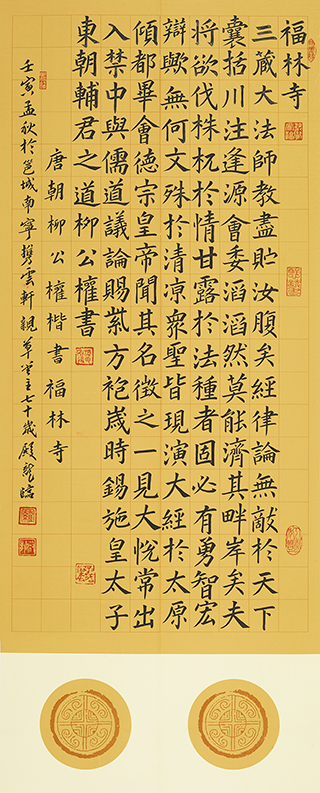 福林寺
三藏大法師教盡貯汝腹矣經律論無敵於天下
囊括川注逢源會委滔滔然莫能濟其畔岸矣夫
將欲伐株杌於情甘露於法種者固必有勇智宏
辯歟無何文殊於清凉衆聖皆現演大經於太原
傾都畢會德宗皇帝聞其名徵之一見大悅常出
入禁中與儒道議論賜紫方袍歲時錫施皇太子
東朝輔君之道柳公權書
唐朝柳公權楷書福林寺
壬寅孟秋於邕城南寧雲軒觀草堂主七十歲臨